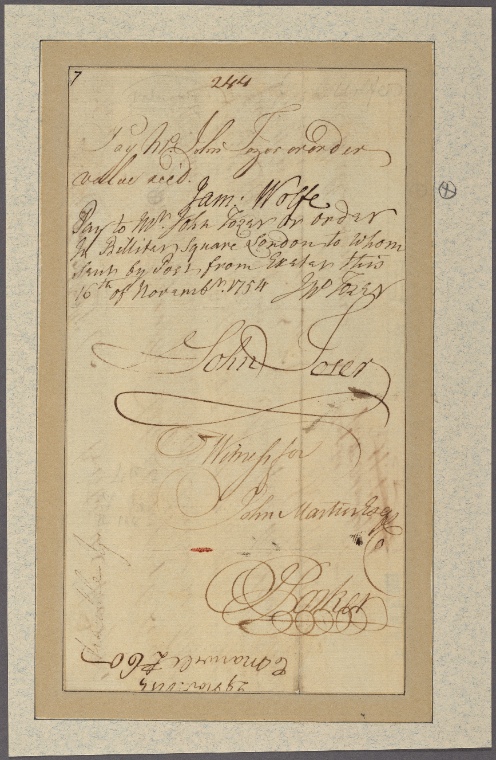 7
244
Pay Mr. John Tozer or order
value rec'd.
Jam: Wolfe
Pay to Mr. John Tozer or order
In Billiter Square London to Whom
sent by Post from Exeter this
16th of Novembr. 1754 Jno Tozer
John Tozer
Witness for
John Martin Esqr
Parker
Emanuele £60